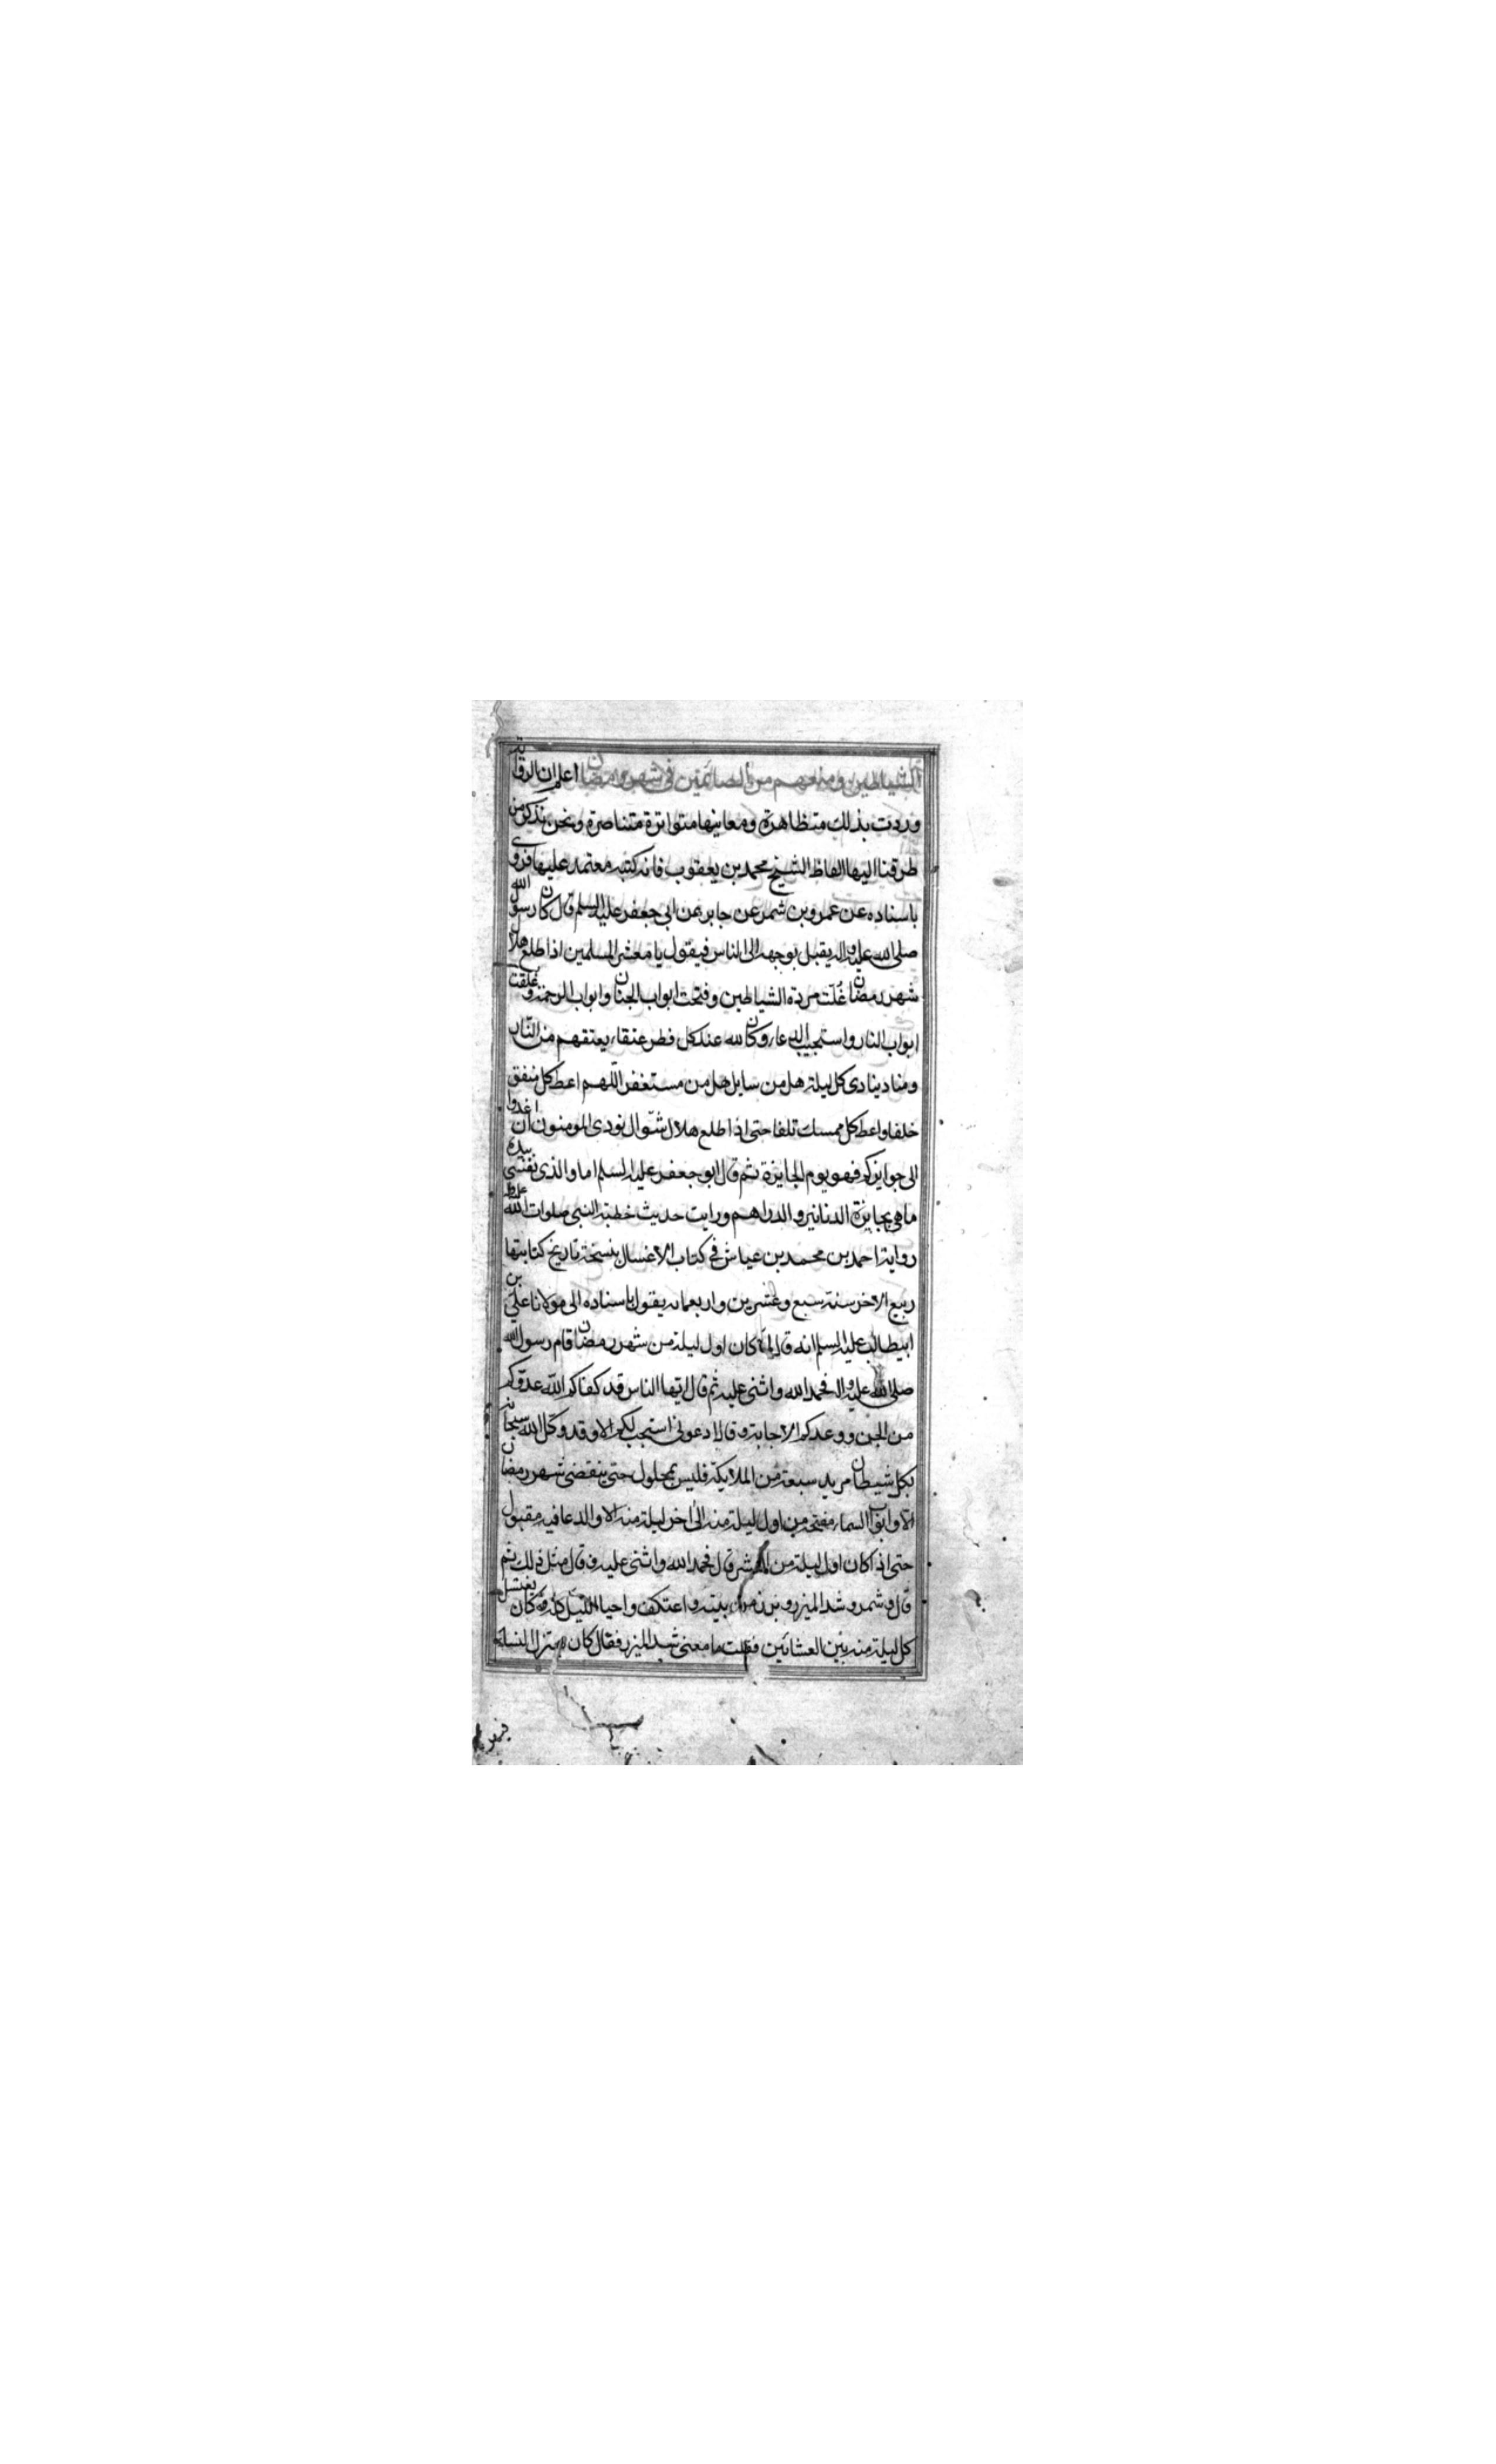 الشياطين ومنعهم من الصائمين في شهر رمضان اعلم ان الرواية
وردت بذلك متظاهرة ومعانيها متواترة متناصرة ونحن نذكر من
طرقنا اليها الفاظ الشيخ محمد بن يعقوب فانه كتبه معتمد عليها فروى
باسناده عن عمرو بن شمر عن جابر عن ابى جعفر عليه السلم قال كان رسول الله
صلى الله عليه واله يقبل بوجهه الى الناس فيقول يا معشر المسلمين اذا طلع هلال
شهر رمضان غلت مردة الشياطين وفتحت ابواب الجنان وابواب الرحمة وغلقت
ابواب النار واستجيب الدعاء وكان لله عند كل فطر عتقاء يعتقهم من النار
ومناد ينادى كل ليلة هل من سايل هل من مستغفر اللهم اعط كل منفق
خلفا واعط كل ممسك تلفا حتى اذا طلع هلال شوال نودى المومنون ان اغدوا
الى جوايزكم فهو يوم الجايزة ثم قال ابو جعفر عليه السلم اما والذى نفسى بيده
ما هى بجايزة الدنانير والدراهم ورايت حديث خطبة النبى صلوات الله عليه
رواية احمد بن محمد بن عياش في كتاب الاغسال بنسخة تاريخ كتابتها
ربيع الاخر سنة سبع وعشرين واربعمائه يقول باسناده الى مولانا على بن
ابيطالب عليه السلم انه قال لما كان اول ليلة من شهر رمضان قام رسول الله
صلى الله عليه واله فحمد الله واثنى عليه ثم قال ايها الناس قد كفاكم الله عدوكم
من الجن ووعدكم الاجابة وقال ادعونى استجب لكم الا وقد وكل الله سبحانه
بكل شيطان مريد سبعة من الملايكة فليس بمحلول حتى ينقضى شهر رمضان
الا وابواب السماء مفتحة من اول ليلة منه الى اخر ليلة منه الا والدعا فيه مقبول
حتى اذا كان اول ليلة من العشر قال فحمد الله واثنى عليه وقال مثل ذلك ثم
قال وشمر وشد الميزر وبرز من بيته واعتكف واحيا الليل كله وكان يغتسل
كل ليلة منه بين العشائين فقلت ما معنى شد الميزر فقال كان يعتزل النساء